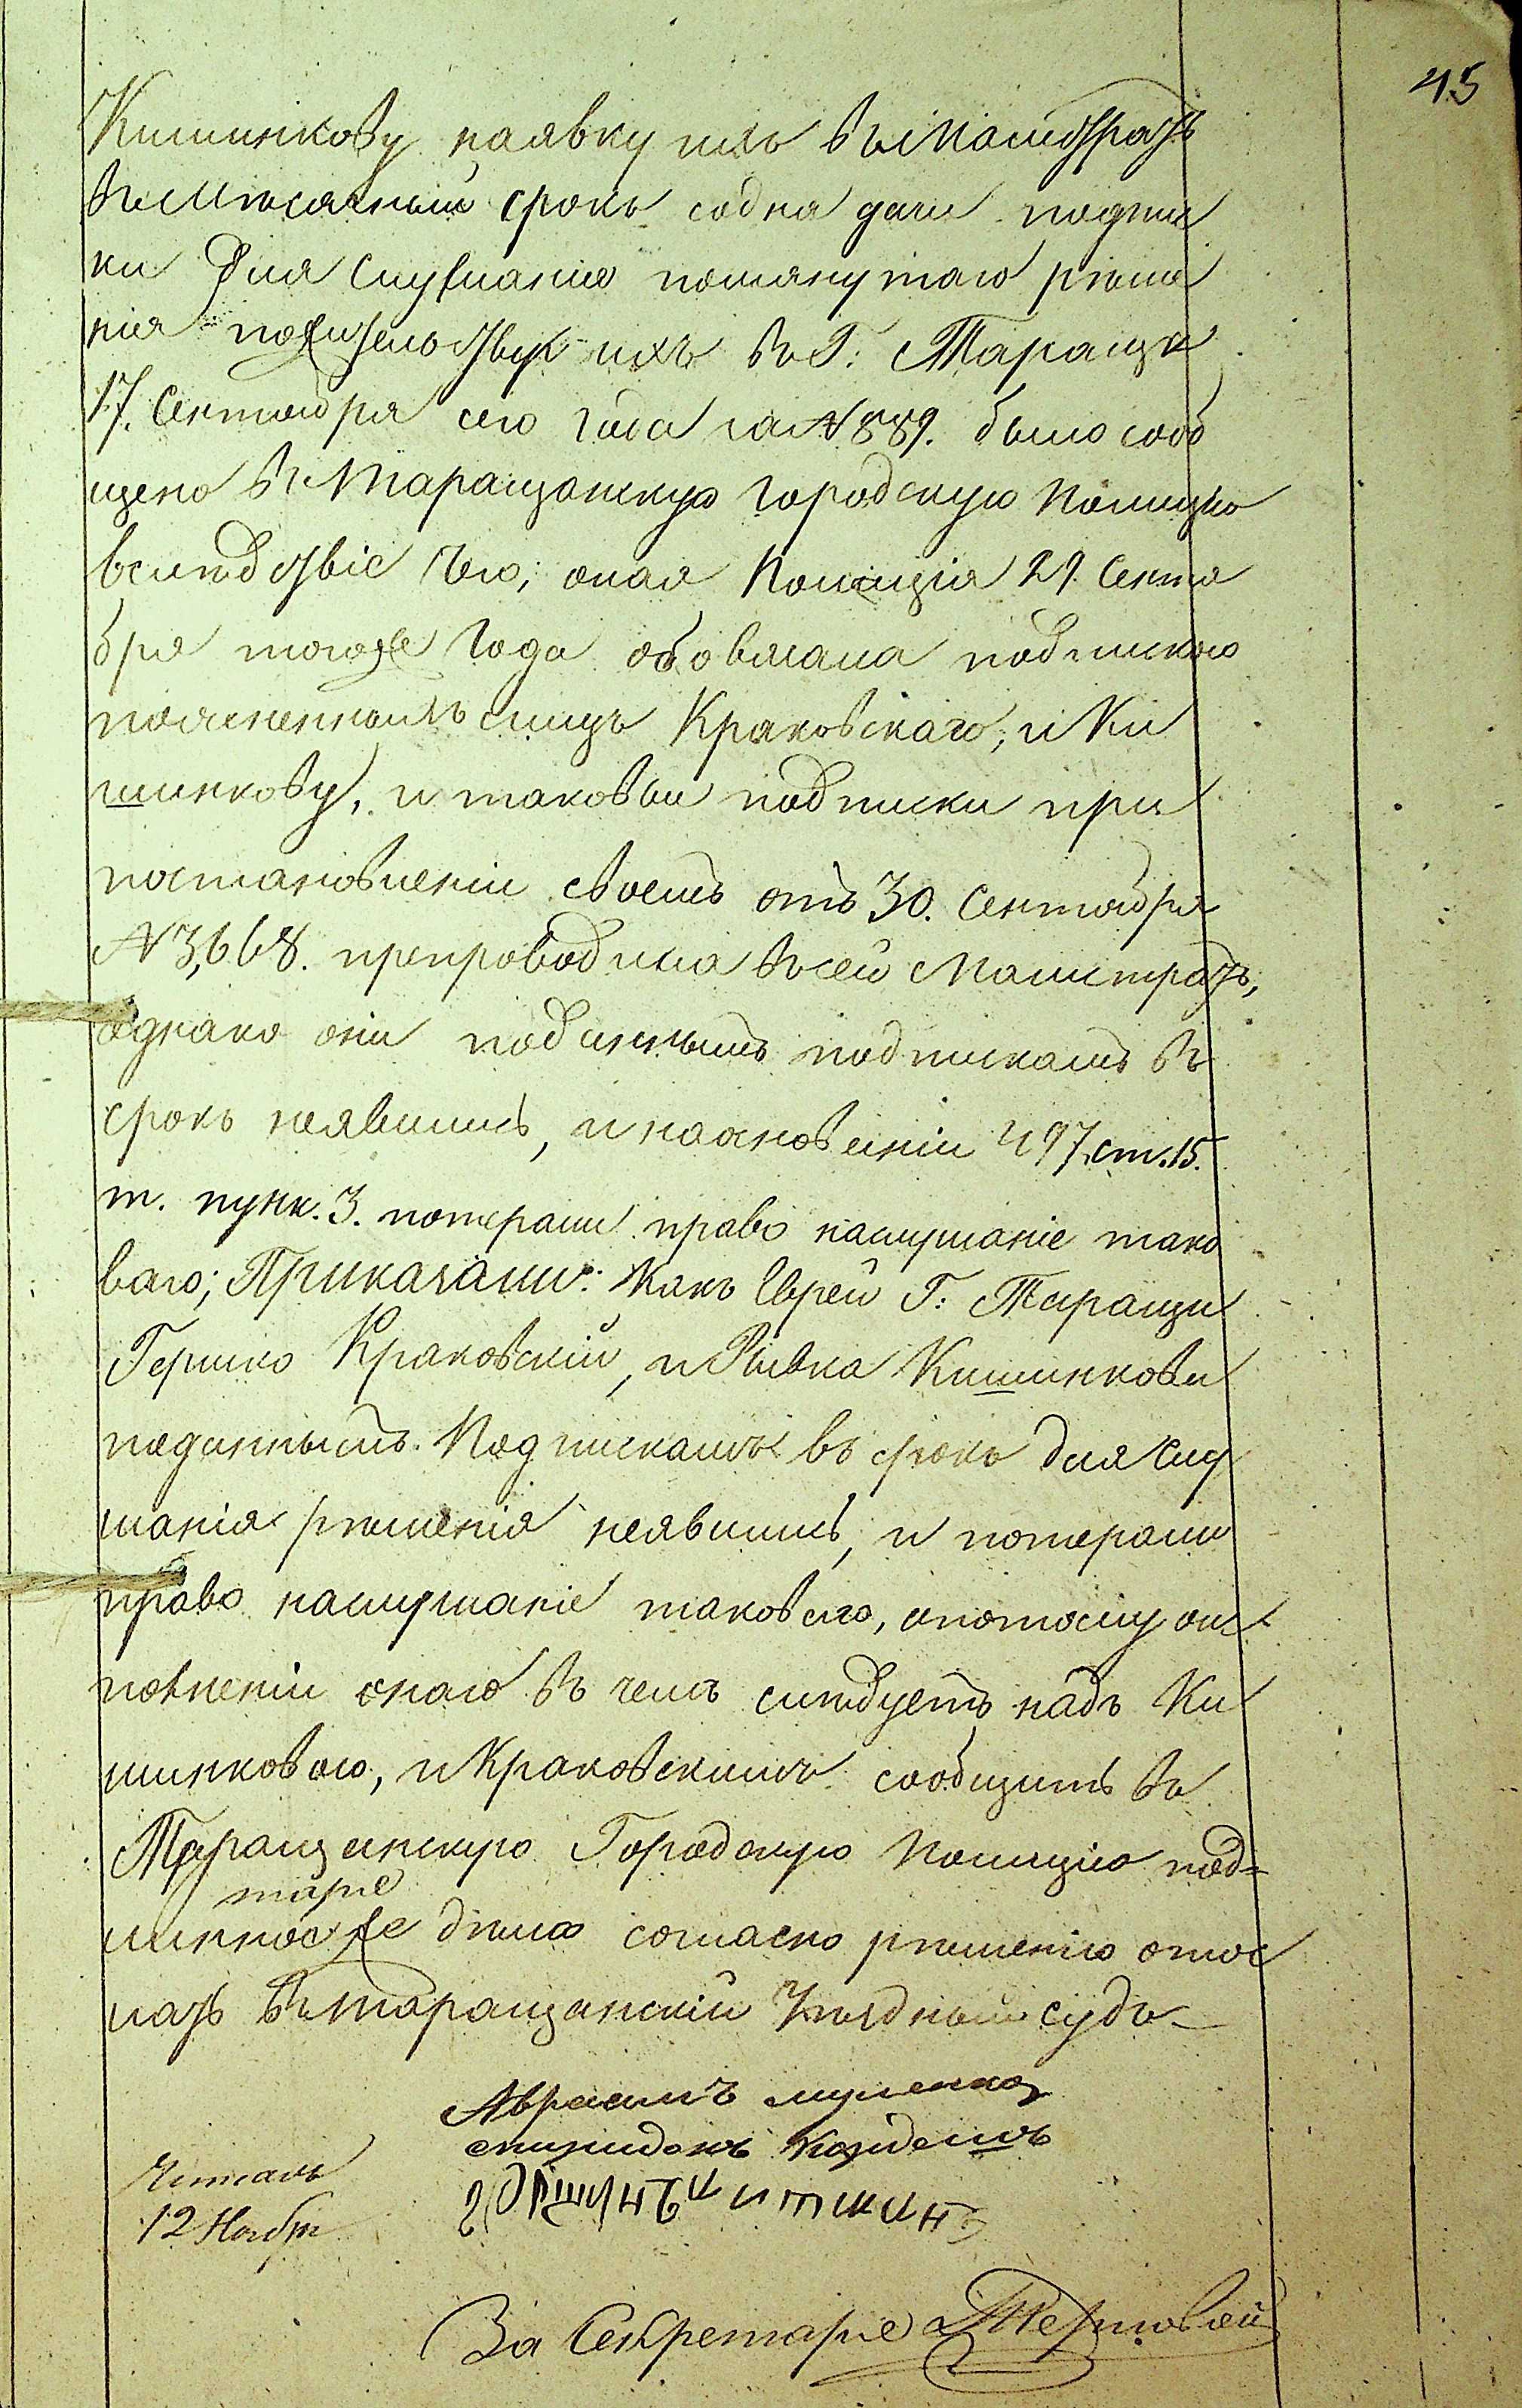 45
Кишинкову наявку ихъ въ Магистратъ
въ Месячный срокъ содня дачи подпис
ки для слушанія помянутаго реше
нія по жительству ихъ въ Г: Тараще
17. Сентября сего года за № 889. было сооб
щено въ Таращанскую Городскую Полицію
вследствіе чего; оная Полиція 29. Сентя
бря тогоже Года обовязала подпискою
поясненныхъ лицъ Краковскаго, и Ки
шинкову, и таковыи подписки при
постановленіи своемъ отъ 30. Сентября
№ 3,668. препроводила въ сей Магистратъ,
однако они поданнымъ подпискамъ въ
срокъ неявились, и наосновеніи 497. ст. 15.
т. пунк. 3. потеряли право наслушаніе тако
ваго; Приказали: Какъ Евреи Г: Таращи
Гершко Краковскій, и Рывка Кишинкова
поданнымъ Подпискамъ въ срокъ для слу
шанія решенія неявились, и потеряли
право наслушаніе таковаго, апотому оис
полненіи онаго въ чемъ следуетъ надъ Ки
шинковою, и Краковскимъ сообщить въ
Таращанскую Городскую Полицію под=
линноеже дело согласно решенію отос
лать въ Таращанскій Уездный судъ
Аврамъ
Спиридонъ
Читалъ
12 Ноябр
За Секретаря Терновой